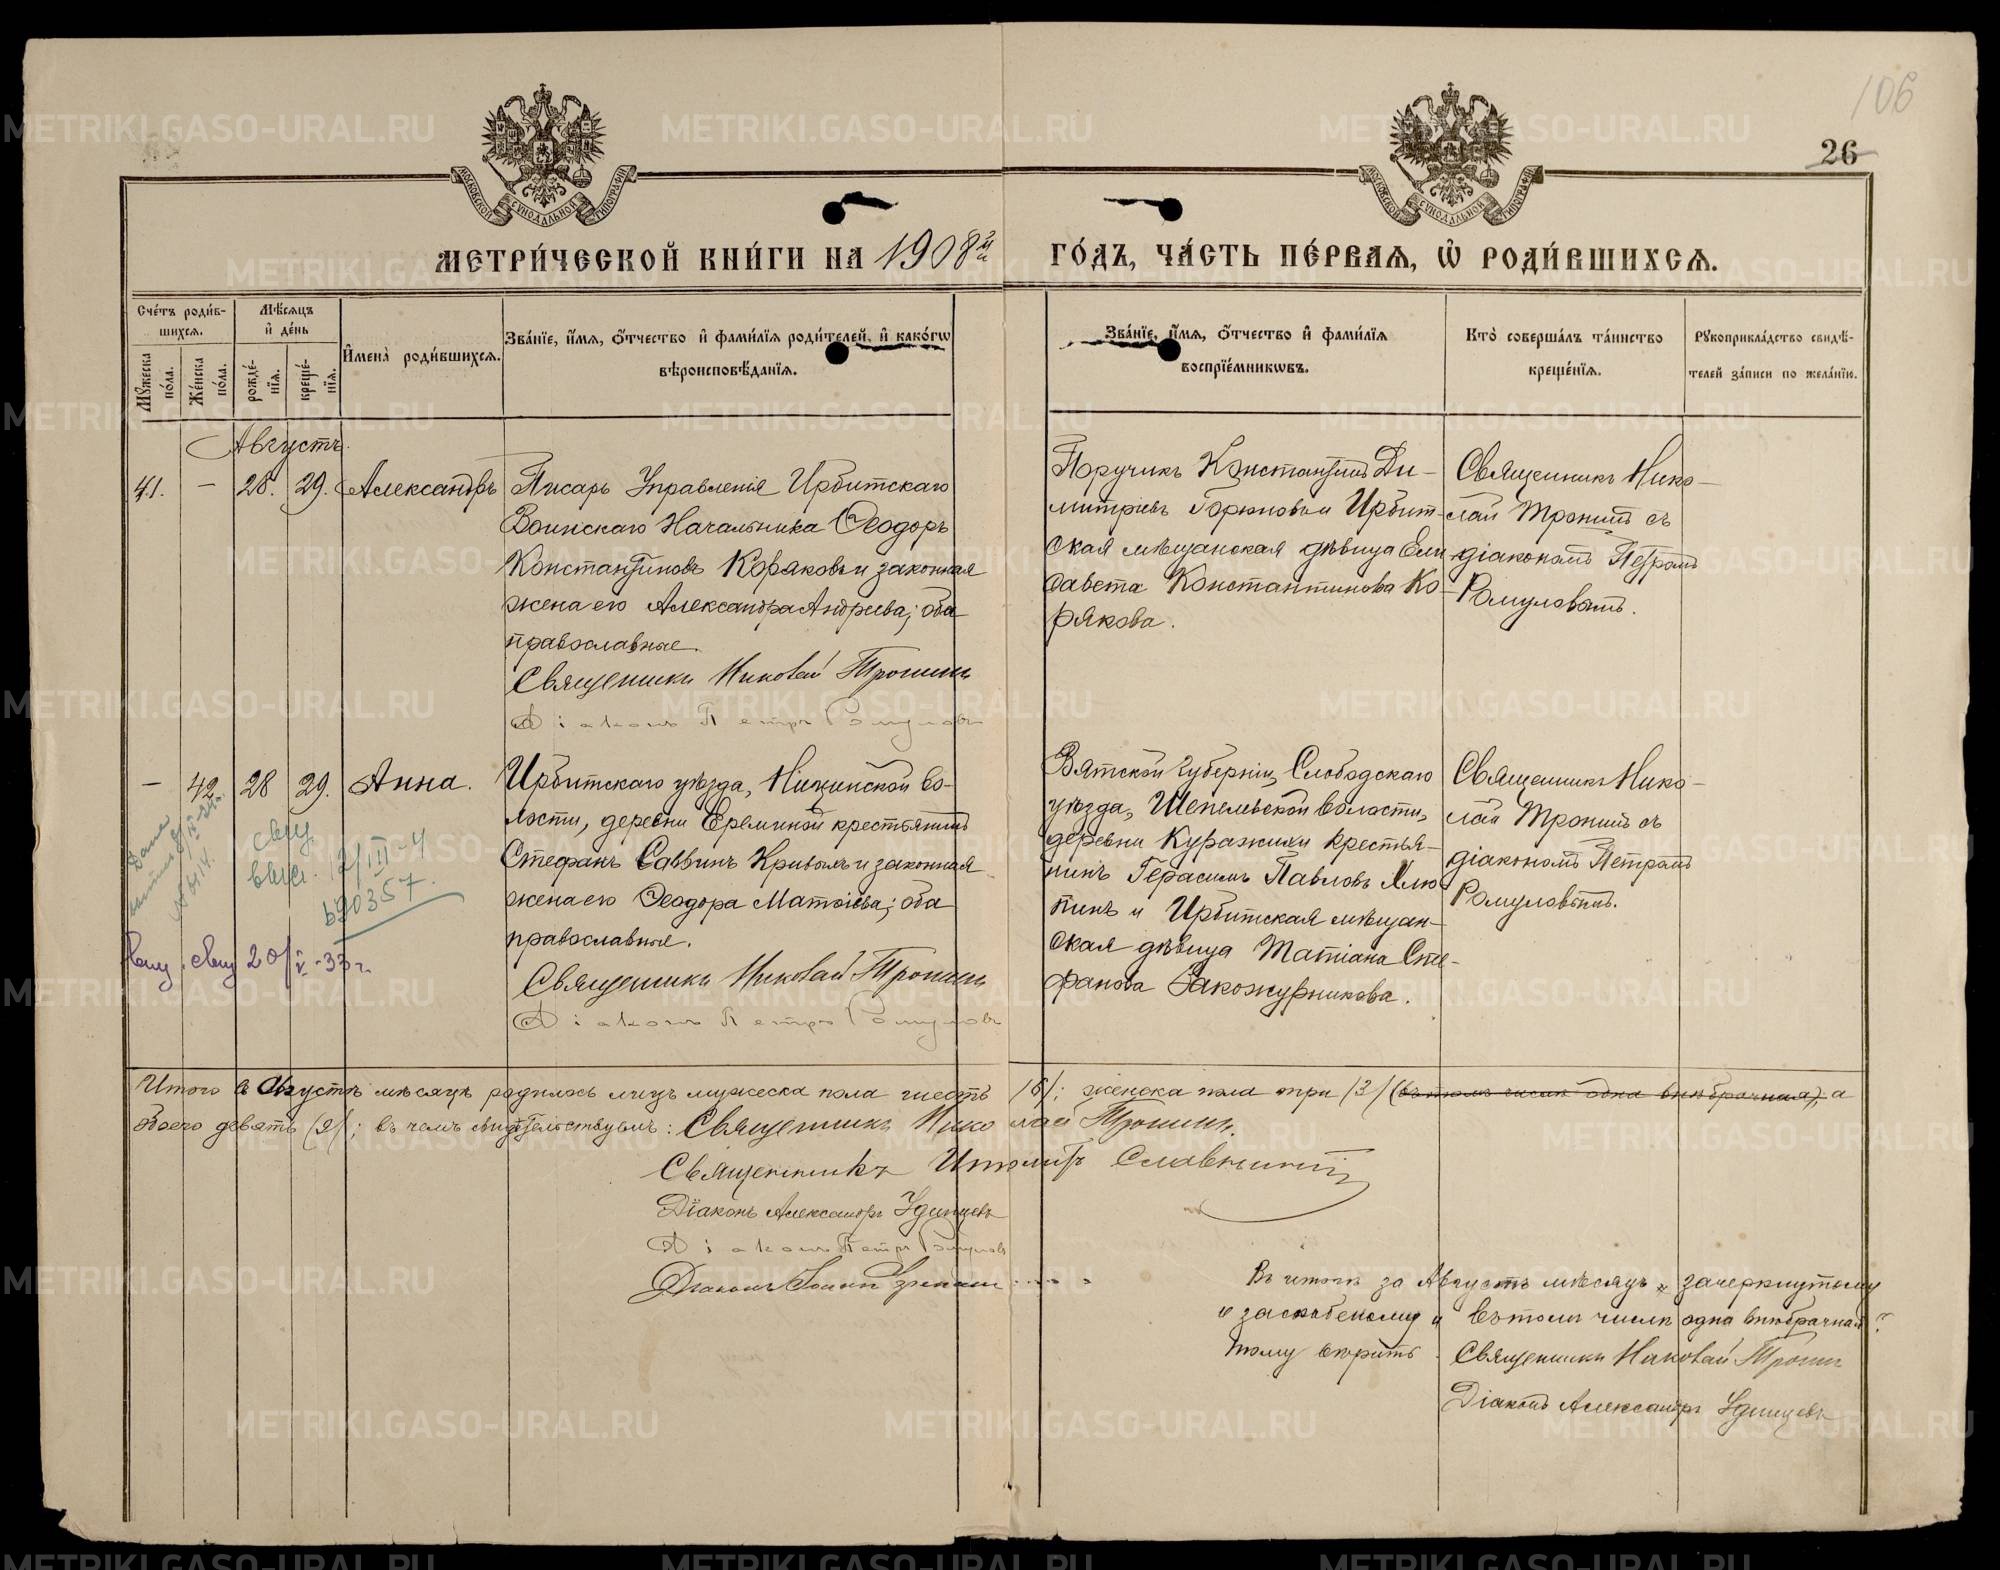 106
26
МОСКОВСКОЙ СѴНОДАЛЬНОЙ ТИПОГРАФІИ
МОСКОВСКОЙ СѴНОДАЛЬНОЙ ТИПОГРАФІИ
МЕТРИ́ЧЕСКОЙ КНИ́ГИ НА 1908й ГО́ДЪ, ЧА́СТЬ ПЕ́РВАѦ, Ѡ҆ РОДИ́ВШИХСѦ.
Сче́тъ роди́в-
шихсѧ.
Мꙋ́жеска по́ла.
Же́нска по́ла.
Мѣ́сѧцъ
и҆ де́нь
рожде́нїѧ.
креще́нїѧ.
И҆мена̀ роди́вшихсѧ.
Зва́нїе, и҆́мѧ, ѻ҆́тчество и҆ фами́лїѧ роди́телей, и҆ како́гѡ
вѣроисповѣ́данїѧ.
Зва́нїе, и҆́мѧ, ѻ҆́тчество и҆ фами́лїѧ
воспрїе́мникѡвъ.
Кто̀ соверша́лъ та́инство
креще́нїѧ.
Рꙋкоприкла́дство свидѣ́-
телей за́писи по жела́нїю.
Августъ.
41. — 28. 29. Александръ
Писарь Управленія Ирбитскаго
Воинскаго Начальника Ѳеодоръ
Константиновъ Коряковъ и законная
жена его Александра Андреева; оба
православные.
Священникъ Николай Тронинъ
Діаконъ Петръ Ромуловъ
Поручикъ Константинъ Ди-
митріевъ Горюновъ и Ирбит-
ская мѣщанская дѣвица Ели
савета Константинова Ко-
рякова.
Священникъ Нико-
лай Тронинъ съ
діакономъ Петромъ
Ромуловымъ.
— 42 28 29. Анна.
Ирбитскаго уѣзда, Ницинской во-
лости, деревни Ереминой крестьянинъ
Стефанъ Саввинъ Кривыхъ и законная
жена его Ѳеодора Матѳіева; оба
православные.
Священникъ Николай Тронинъ
Діаконъ Петръ Ромуловъ
Вятской губерніи, Слободскаго
уѣзда, Шепелевской волости,
деревни Куражихи крестья-
нинъ Герасимъ Павловъ Хлю
пинъ и Ирбитская мѣщан-
ская дѣвица Татіана Сте-
фанова Закожурникова.
Священникъ Нико-
лай Тронинъ съ
діакономъ Петромъ
Ромуловымъ.
12/III-4
690357.
свид 20/V-33 г.
Итого въ Августѣ мѣсяцѣ родилось лицъ мужеска пола шесть /6/; женска пола три /3/ (въ томъ числѣ одна внѣбрачная), а
всего девять /9/; въ чемъ свидѣтельствуемъ: Священникъ Николай Тронинъ.
Священникъ Славнинъ
Діаконъ Александръ Удинцевъ
Діаконъ Петръ Ромуловъ
Діаконъ Іоаннъ
Въ итогѣ за Августъ мѣсяцъ „зачеркнутому
и заскобленому „въ томъ числѣ одна внѣбрачная“
тому вѣрить. Священникъ Николай Тронинъ
Діаконъ Александръ Удинцевъ
METRIKI.GASO-URAL.RU